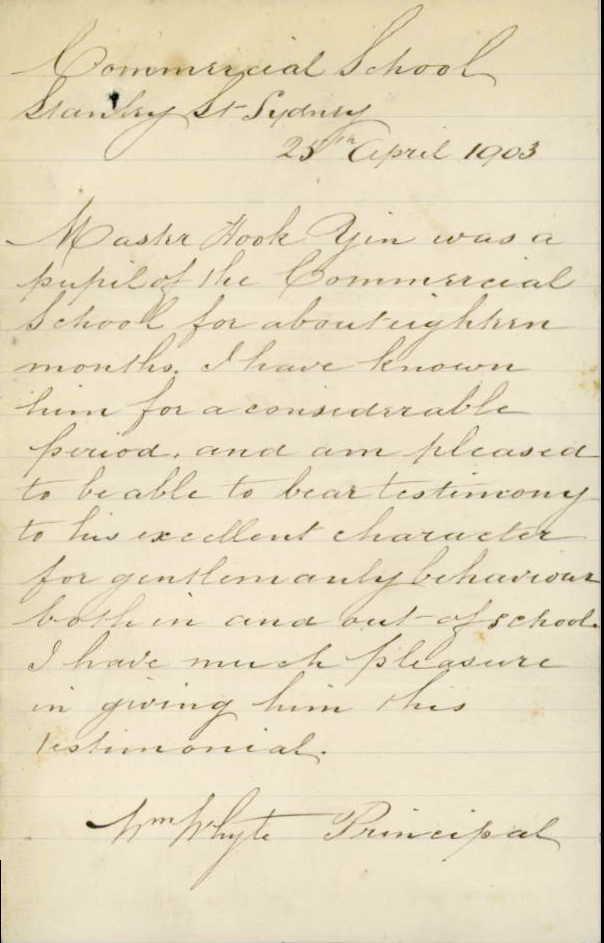 Commercial School
Stanley St Sydney
25th April 1903
Master Hook Yin was a
pupil of the Commercial
School for about eighteen
months. I have known
him for a considerable
period, and am pleased
to be able to bear testimony
to his excellent character
for gentlemanly behaviour
both in and out of school.
I have much pleasure
in giving him this
testimonial.
Wm Whyte Principal